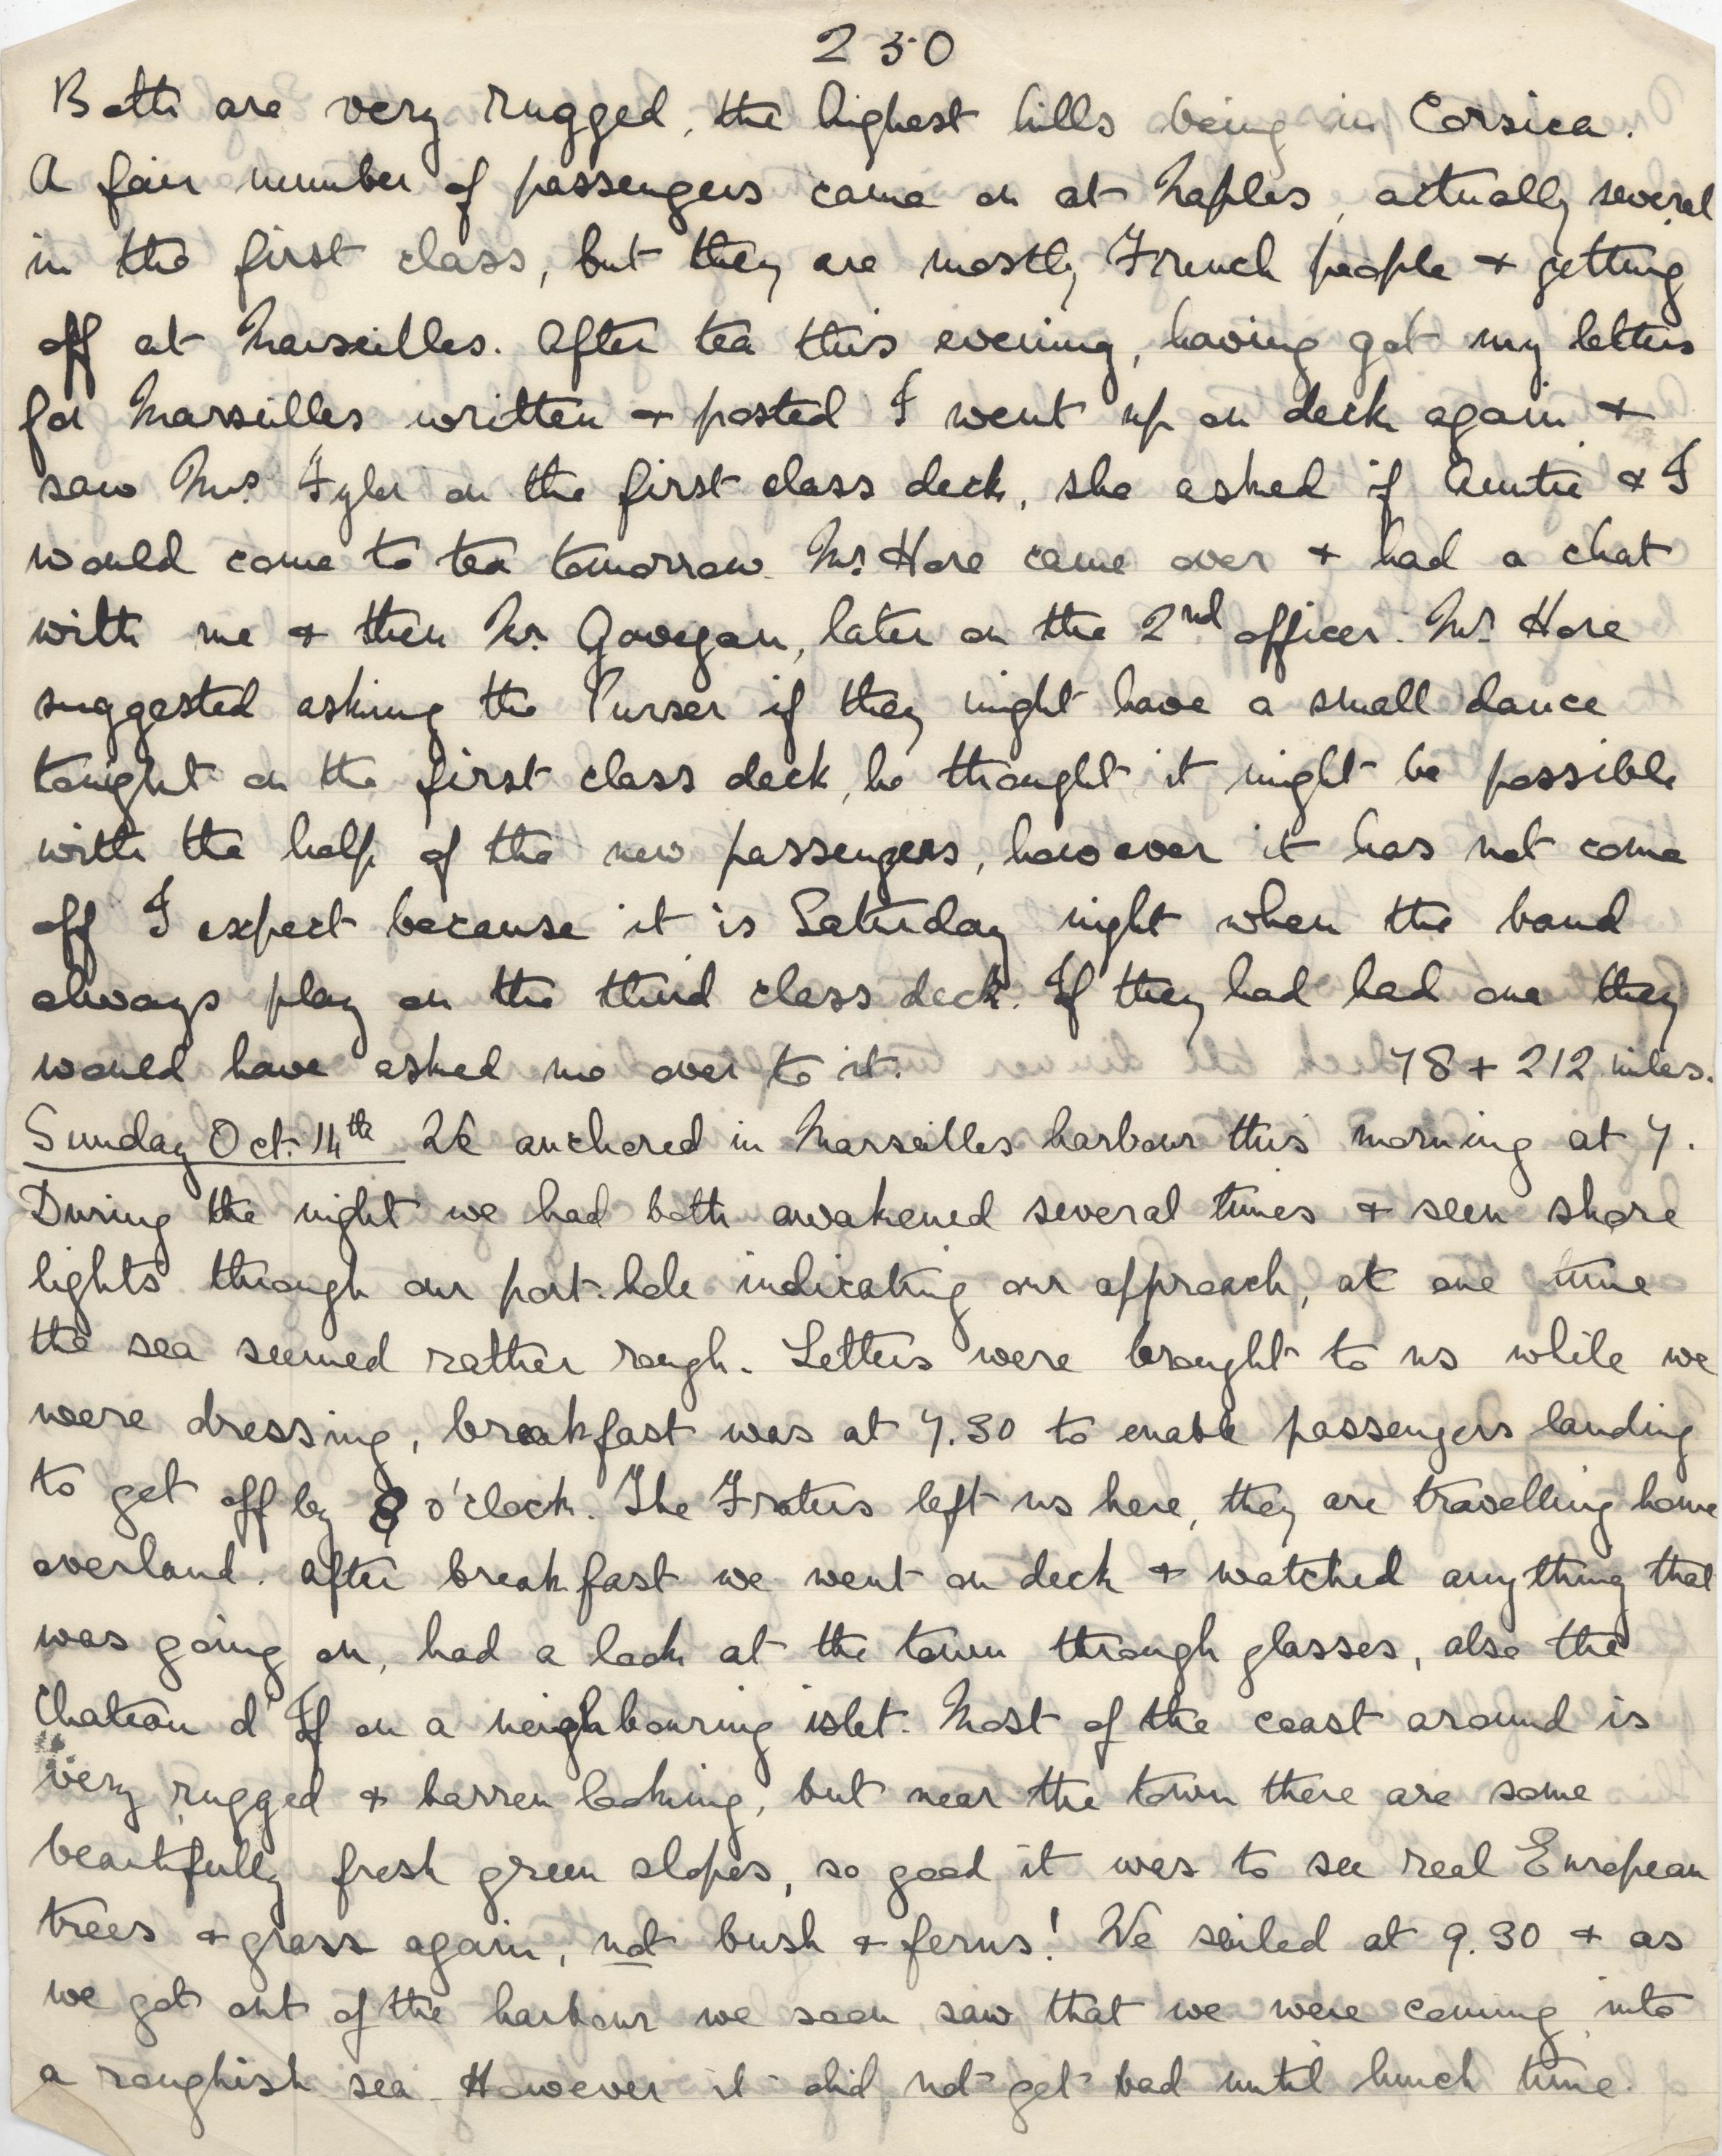 230
Both are very rugged, the highest hills being in Corsica.
A fair number of passengers came on at Naples, actually several
in the first class, but they are mostly French people + getting
off at Marseilles. After tea this evening, having got my letters
for Marseilles written + posted I went up on deck again +
saw Mrs. Fyler on the first class deck, she asked if Auntie & I
would come to tea tomorrow. Mr. Hore came over + had a chat
with me + then Mr. Gavegan, later on the 2nd officer. Mr. Hore
suggested asking the Purser if they might have a small dance
tonight on the first class deck, he thought it might be possible
with the help of the new passengers, however it has not come
off I expect because it is Saturday night when the band
always play on the third class deck. If they had had one they
would have asked me over to it. 78 + 212 miles.
Sunday Oct. 14th We anchored in Marseilles harbour this morning at 7.
During the night we had both awakened several times + seen shore
lights through our port-hole indicating our approach, at one time
the sea seemed rather rough. Letters were brought to us while we
were dressing, breakfast was at 7.30 to enable passengers landing
to get off by 8 o'clock. The Fraters left us here, they are travelling home
overland. After breakfast we went on deck + watched anything that
was going on, had a look at the town through glasses, also the
Chateau d'If on a neighbouring islet. Most of the coast around is
very rugged + barren looking, but near the town there are some
beautifully fresh green slopes, so good it was to see real European
trees + grass again, not bush + ferns! We sailed at 9.30 + as
we got out of the harbour we soon saw that we were coming into
a roughish sea. However it did not get bad until lunch time.